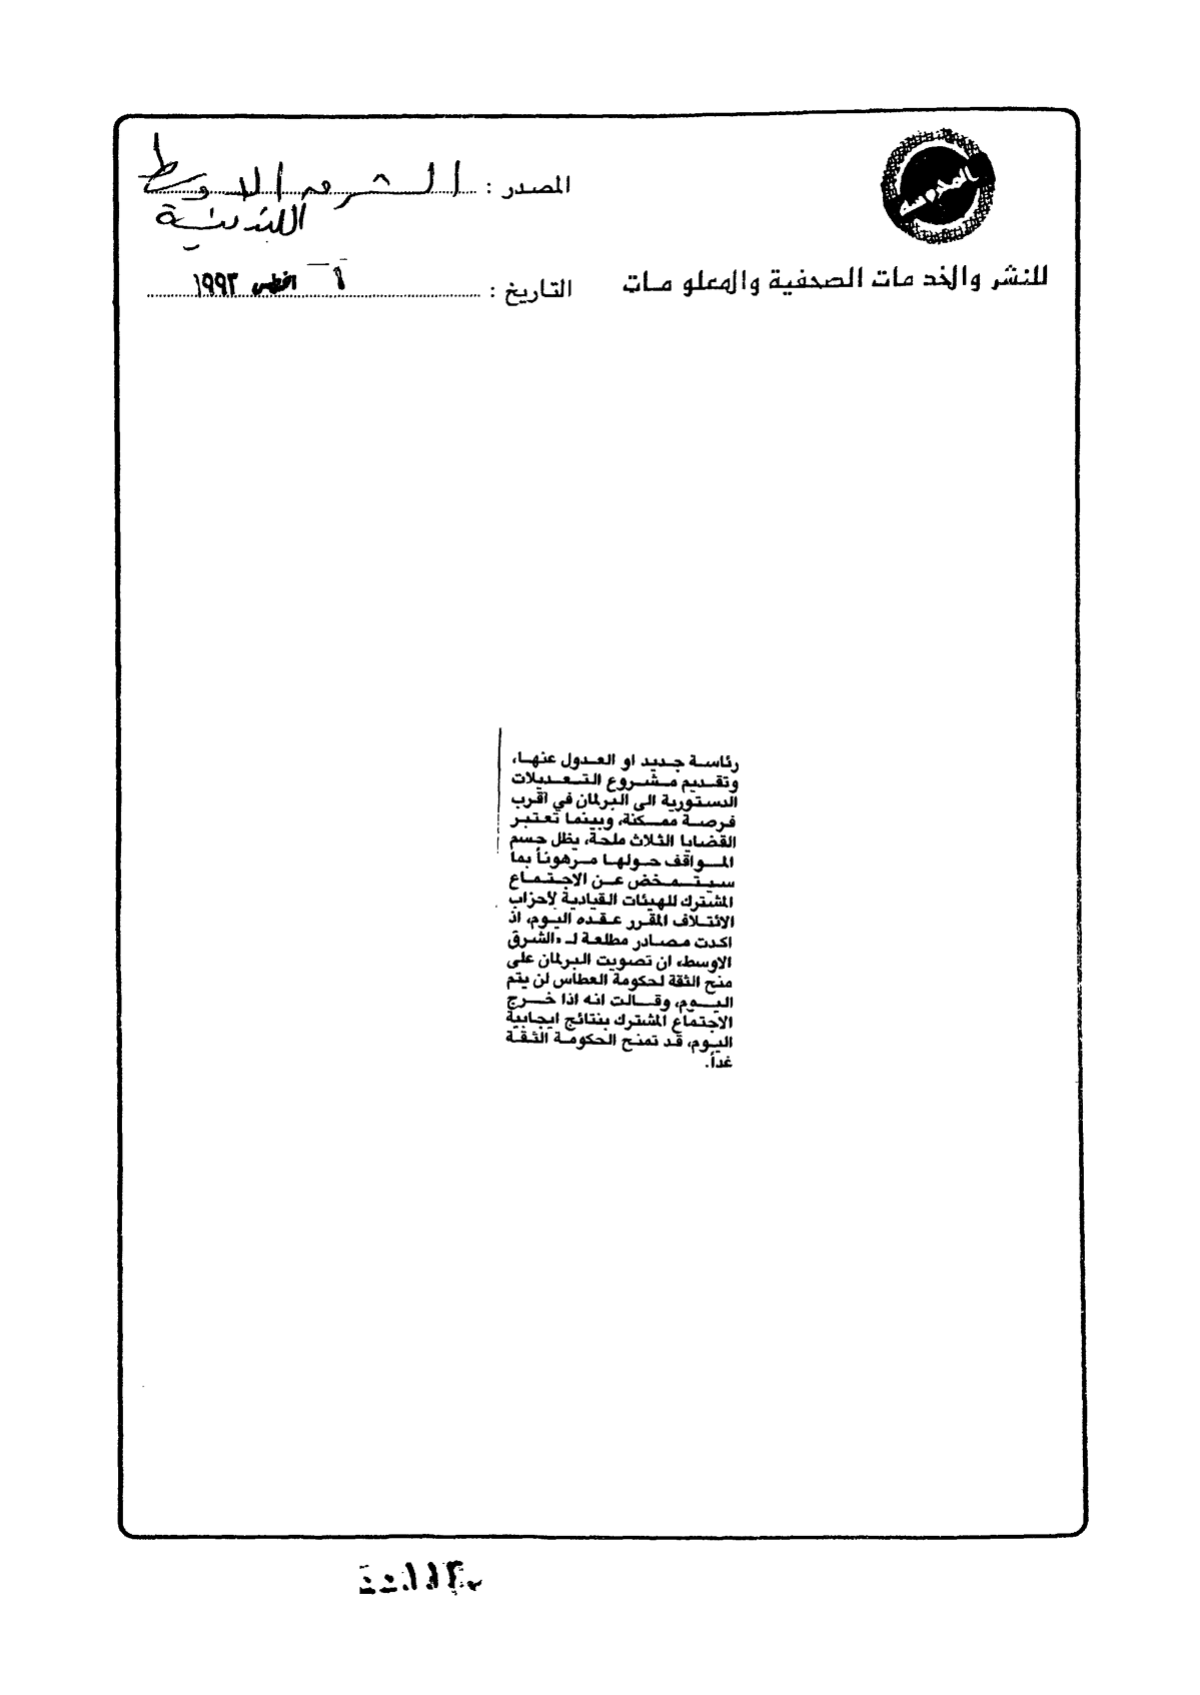 المصدر : الشرق الاوسط
اللندنية
للنشر والخدمات الصحفية والمعلومات
التاريخ : اغسطس ١٩٩٣
رئاسة جديد او العدول عنها،
وتقديم مشروع التعديلات
الدستورية الى البرلمان في اقرب
فرصة ممكنة، وبينما تعتبر
القضايا الثلاث ملحة، يظل حسم
المواقف حولها مرهوناً بما
سيتمخض عن الاجتماع
المشترك للهيئات القيادية لأحزاب
الائتلاف المقرر عقده اليوم، اذ
اكدت مصادر مطلعة لـ «الشرق
الاوسط» ان تصويت البرلمان على
منح الثقة لحكومة العطاس لن يتم
اليوم، وقالت انه اذا خرج
الاجتماع المشترك بنتائج ايجابية
اليوم، قد تمنح الحكومة الثقة
غداً.